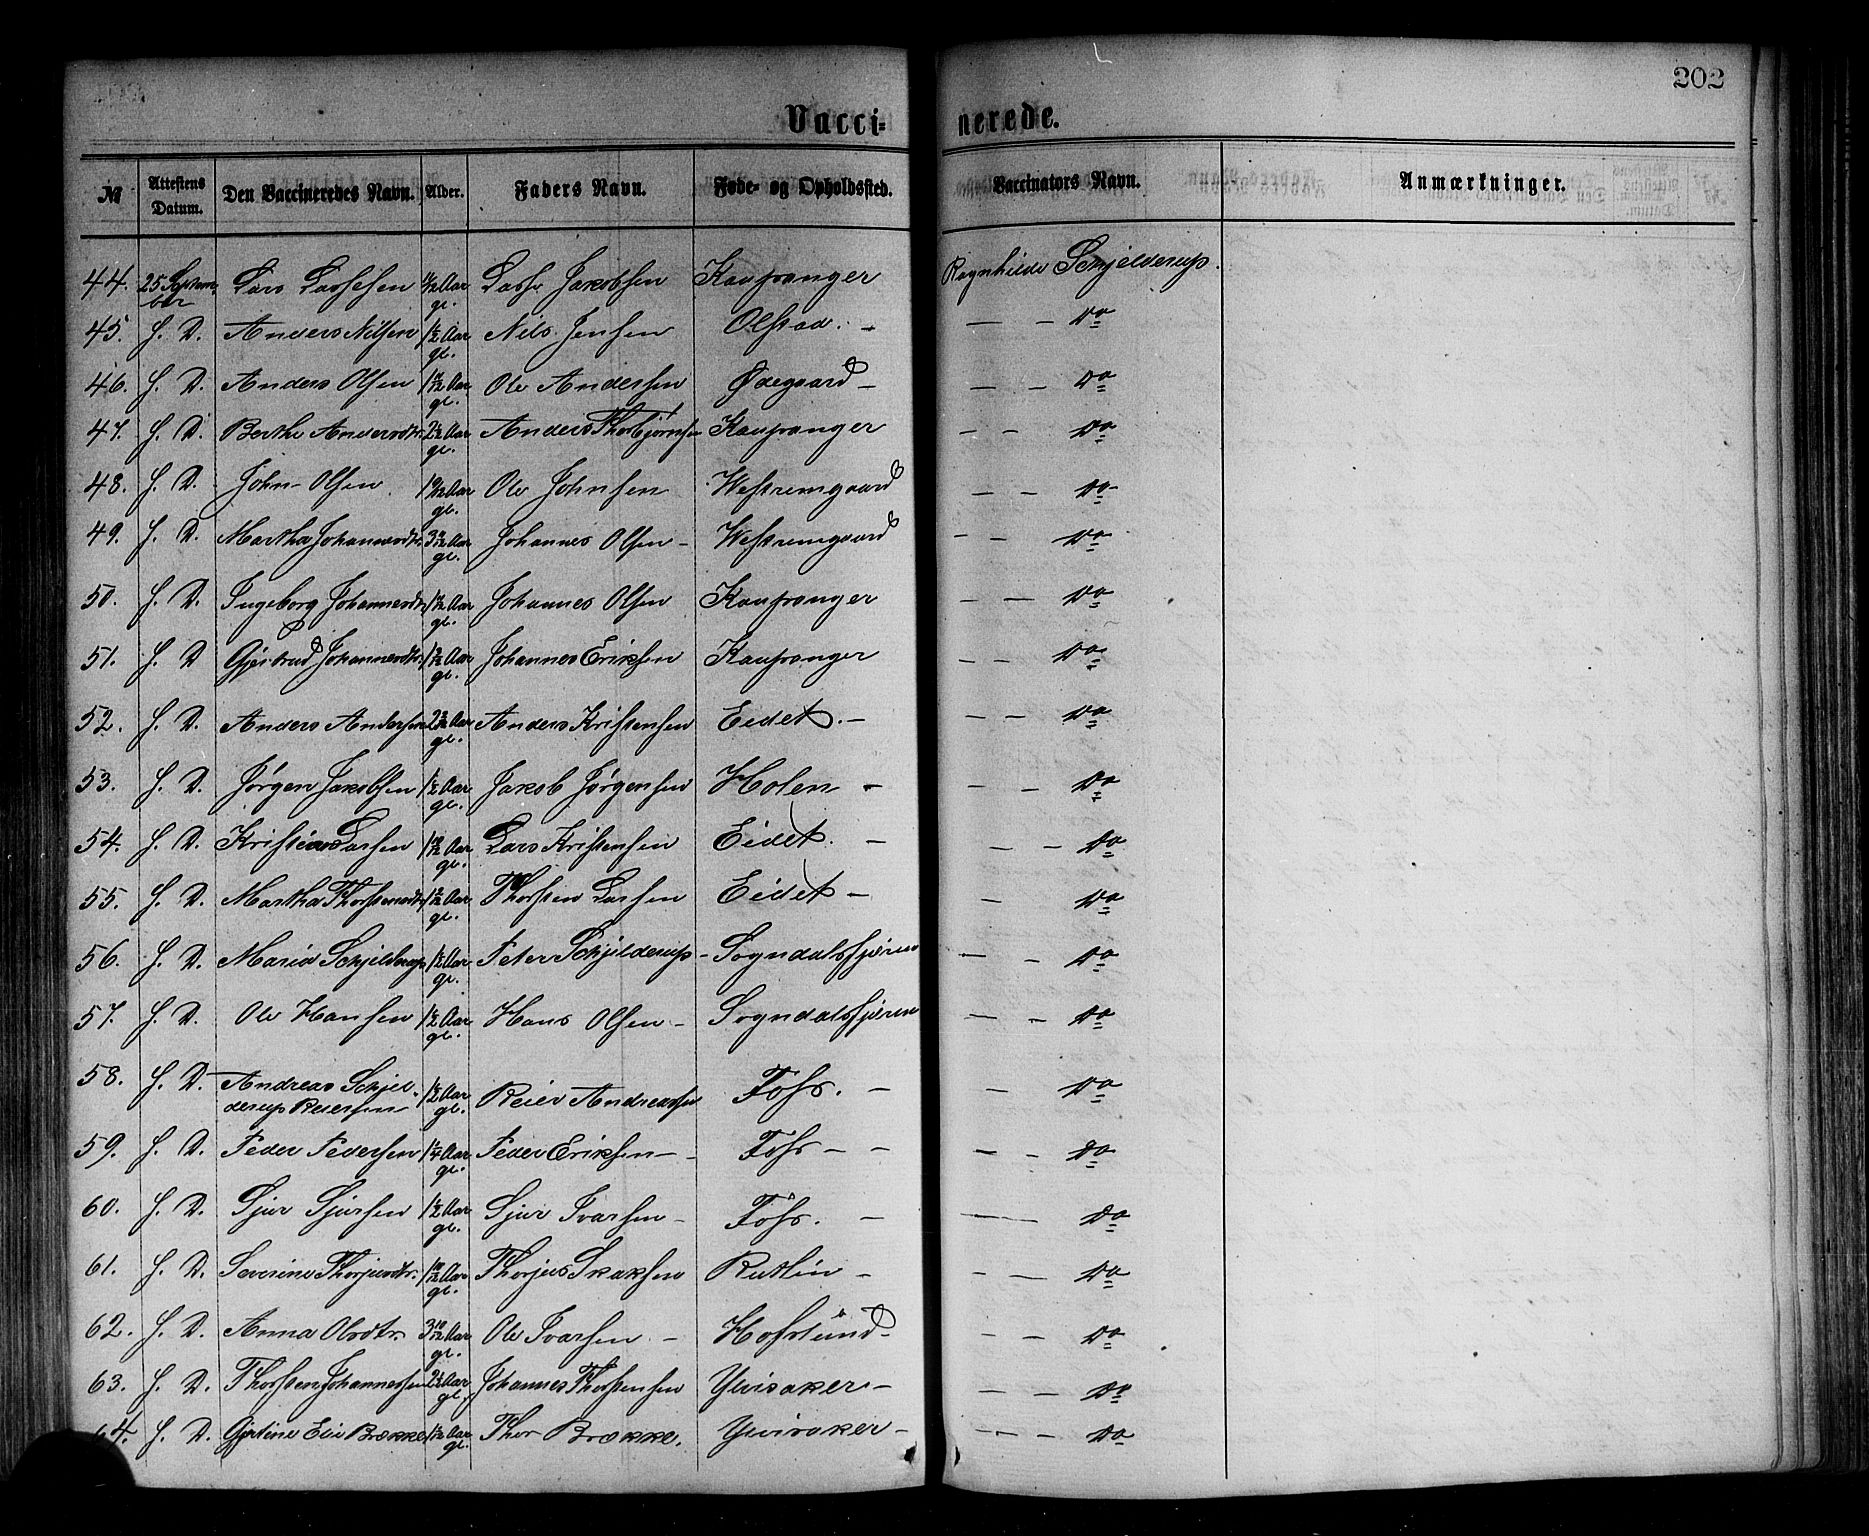 202
Vacci= nerede.
№ Attestens Datum. Den Vaccineredes Navn. Alder. Faders Navn. Føde- og Opholdssted. Vaccinators Navn. Anmærkninger.
44. 25 Septem-ber Lars Lassesen Aar gl. Lasse Jakobsen Kaupanger Ragnhilde Schjelderup.
45. S. D. Anders Nilsen 1½ Aar gl. Nils Jensen Olstad. - — - Do
46. S. D. Anders Olsen Aar gl. Ole Andersen Ødegaard - — - Do
47. S. D. Berthe Andersdtr. 2½ Aar gl. Anders Thorbjørnsen Kaupanger — - Do
48. S. D. John Olsen Aar gl. Ole Johnsen Westremgaard — - Do
49. S. D. Martha Johannesdtr. Aar gl. Johannes Olsen - Westremgaard - - Do
50. S. D. Ingeborg Johannesdtr. Aar gl. Johannes Olsen Kaupanger — — Do
51. S. D Gjertrud Johannesdtr. Aar gl. Johannes Eriksen Kaupanger — - Do
52. S. D. Anders Andersen Aar gl. Anders Kristensen Eidet. - — - Do
53. S. D. Jørgen Jakobsen 1½ Aar gl. Jakob Jørgensen Holen - — - Do
54. S. D. Kristen Larsen Aar gl. Lars Kristensen Eidet. - — - Do
55. S. D. Martha Thorstensdtr. Aar gl. Thorsten Larsen Eidet - — Do
56. S. D. Maria Schjelderup 1½ Aar gl. Peter Schjelderup - Sogndalsfjøren — - Do
57. S. D. Ole Hansen 1½ Aar gl. Hans Olsen - Sogndalsfjøren — - Do
58. S. D. Andreas Schjel-derup Reiersen 1½ Aar gl. Reier Andreassen Foss. - — Do
59. S. D. Peder Pedersen 1¼ Aar gl. Peder Eriksen - - Foss - - — - Do
60. S. D. Sjur Sjursen 1½ Aar gl. Sjur Ivarsen - Foss. - — Do
61. S. D. Severine Thorjusdtr. Aar gl. Thorjus Isaksen Rutlin - — — Do
62. S. D. Anna Olsdtr. 3 10/12 Aar gl. Ole Ivarsen - Hofslund - — - Do
63. S. D. Thorsten Johannessen 2½ Aar gl. Johannes Thorstensen Yvisaker - — - Do
64. S. D. Gjertine Elie Brække Aar gl. Thor Brække. Yvisaker - — — Do